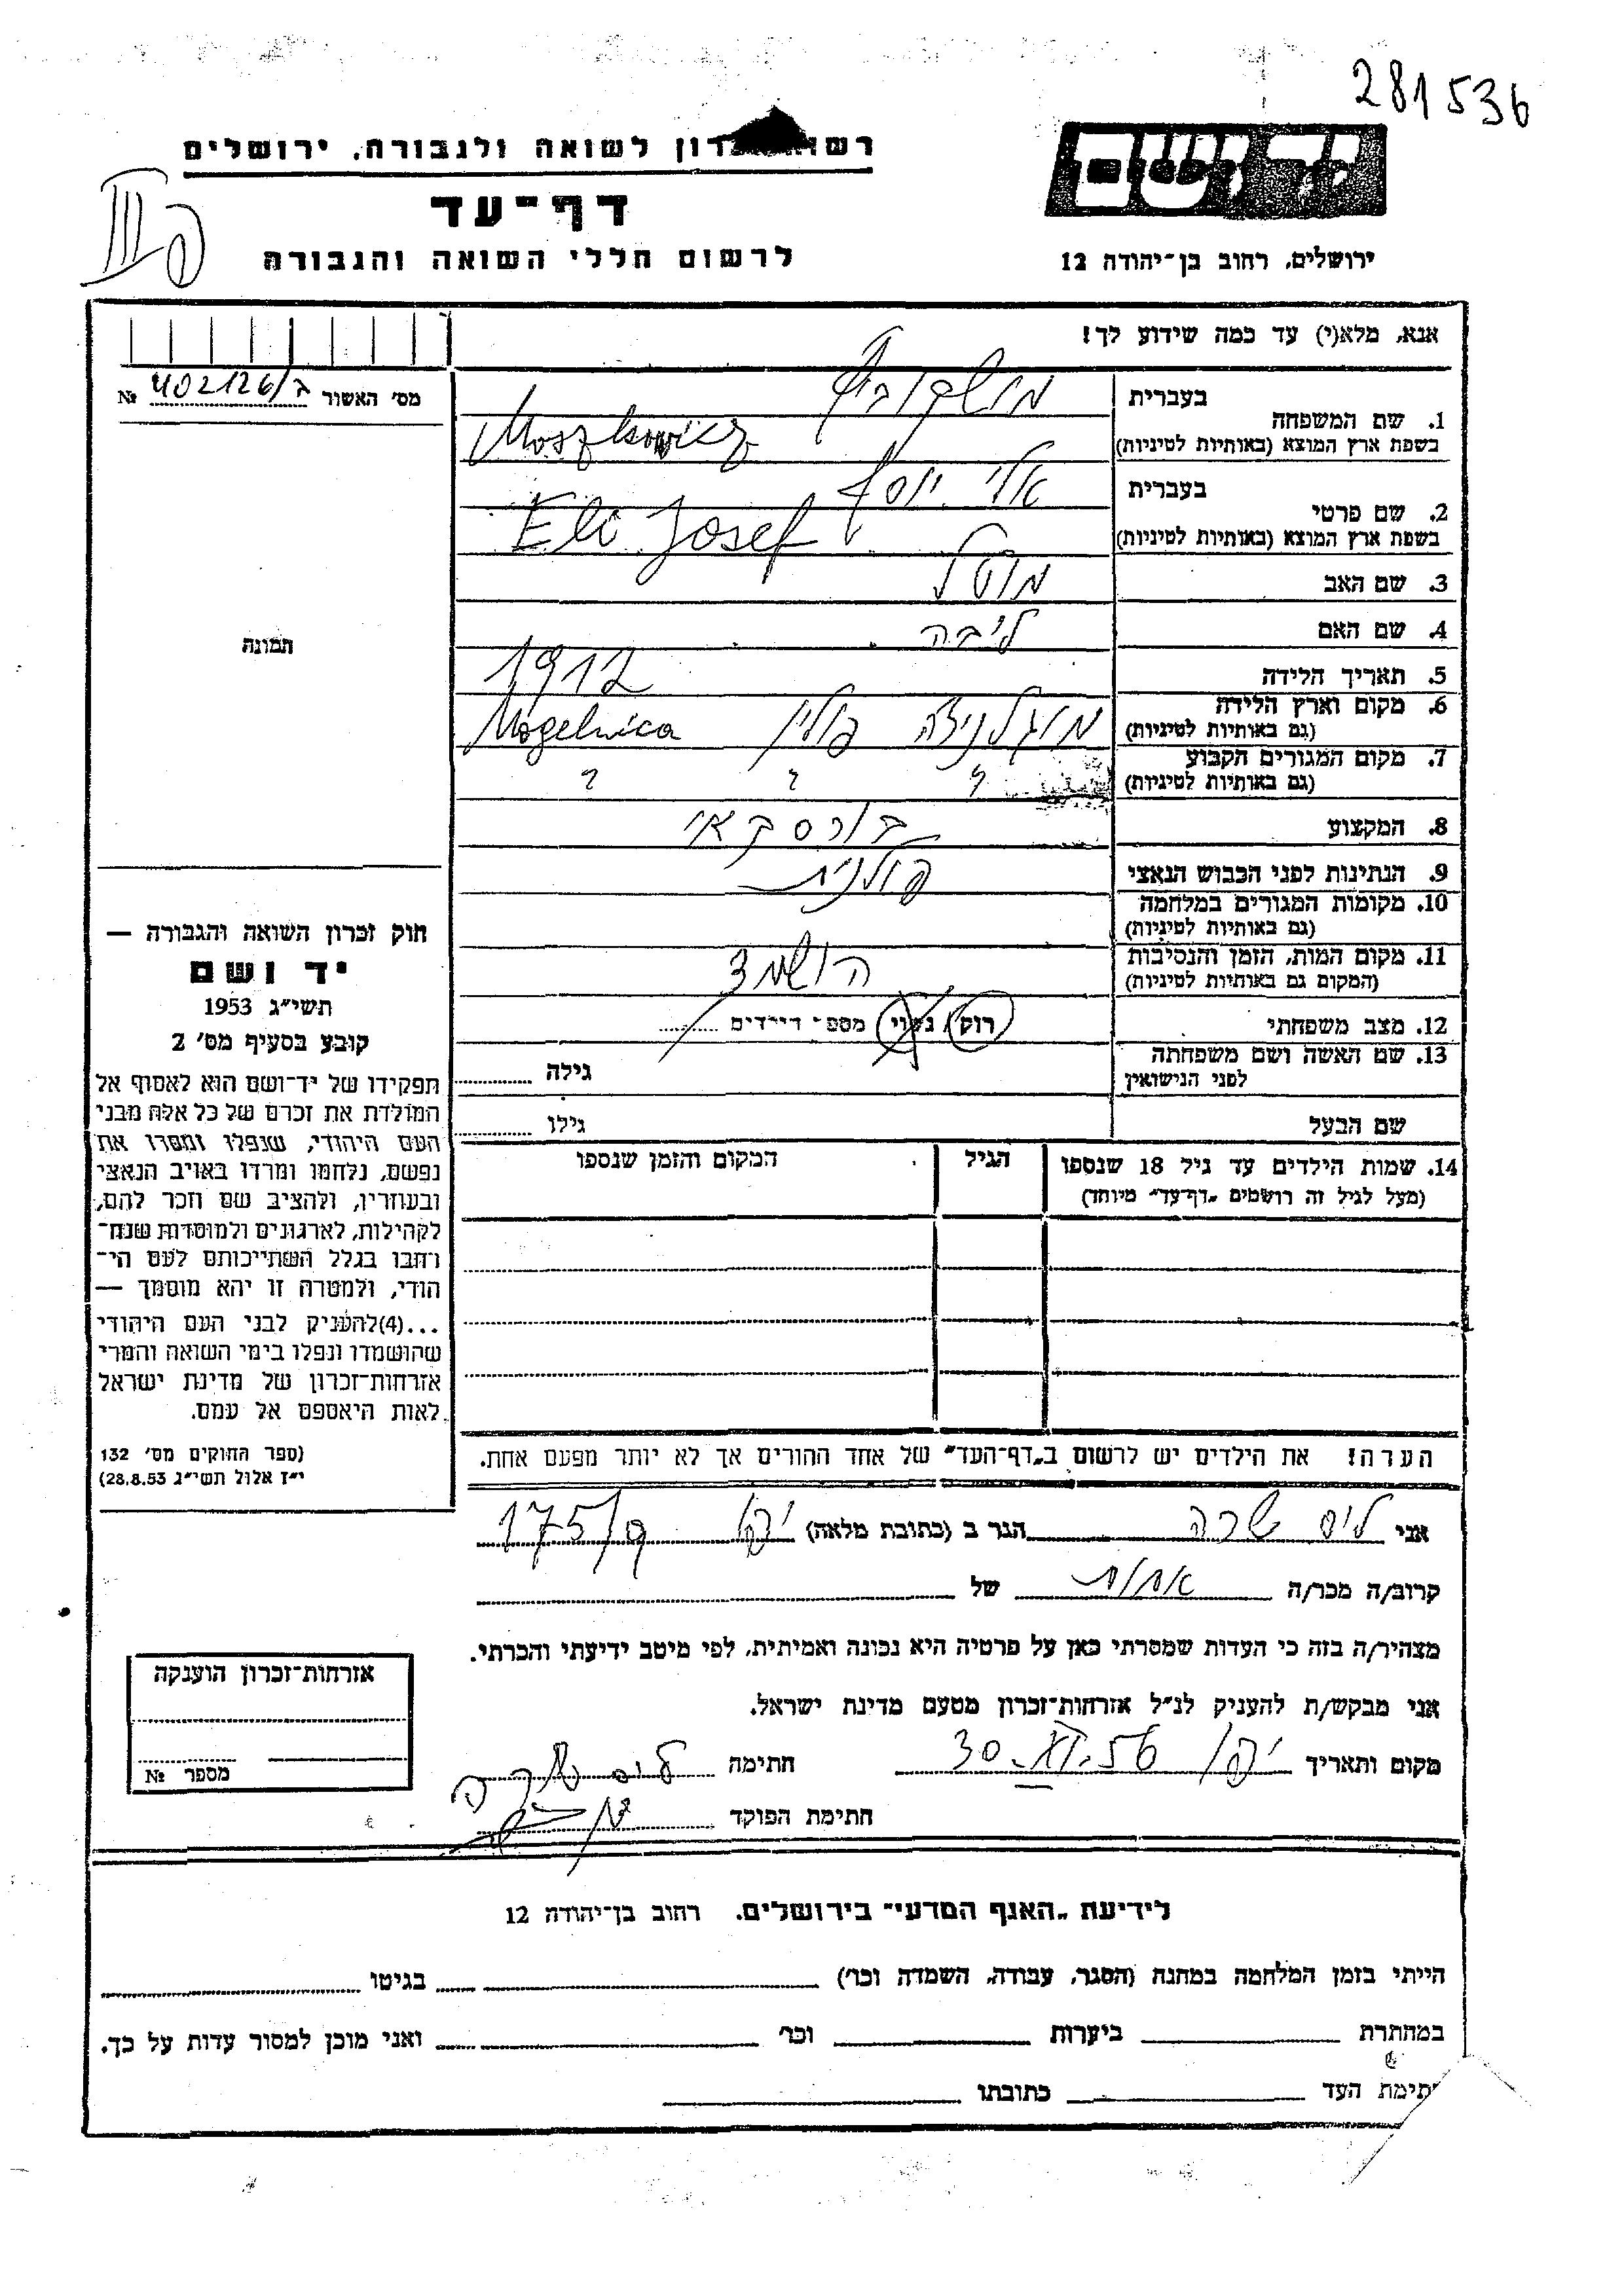 281536
יד ושם
רשות זכרון לשואה ולגבורה, ירושלים
דף־עד
לרשום חללי השואה והגבורה
ירושלים, רחוב בן־יהודה 12
אנא, מלא(י) עד כמה שידוע לך!
מס׳ האשור 402126/ № 
1. שם המשפחה
בעברית מושקוביץ
בשפת ארץ המוצא (באותיות לטיניות) Moszkowicz
2. שם פרטי
בעברית אלי יוסף
בשפת ארץ המוצא (באותיות לטיניות) Eli Josef
3. שם האב מוטל
4. שם האם ליבה
5. תאריך הלידה 1912
6. מקום וארץ הלידה מוגלניצה פולין Mogelnica
(גם באותיות לטיניות)
7. מקום המגורים הקבוע ? ? ?
(גם באותיות לטיניות)
8. המקצוע בורסקאי
9. הנתינות לפני הכבוש הנאצי פולנית
10. מקומות המגורים במלחמה
(גם באותיות לטיניות)
11. מקום המות, הזמן והנסיבות הושמד
(המקום גם באותיות לטיניות)
12. מצב משפחתי רוק/ נשוי מספר ילדים
13. שם האשה ושם משפחתה גילה
לפני הנישואין
שם הבעל גילו
14. שמות הילדים עד גיל 18 שנספו הגיל המקום והזמן שנספו
(מעל לגיל זה רושמים „דף־עד״ מיוחד)
תמונה
חוק זכרון השואה והגבורה —
יד ושם
תשי״ג 1953
קובע בסעיף מס׳ 2
תפקידו של יד־ושם הוא לאסוף אל
המולדת את זכרם של כל אלה מבני
העם היהודי, שנפלו ומסרו את
נפשם, נלחמו ומרדו באויב הנאצי
ובעוזריו, ולהציב שם וזכר להם,
לקהילות, לארגונים ולמוסדות שנח־
רחבו בגלל השתייכותם לעם הי־
הודי, ולמטרה זו יהא מוסמך —
...(4)להעניק לבני העם היהודי
שהושמדו ונפלו בימי השואה והמרי
אזרחות־זכרון של מדינת ישראל
לאות היאספם אל עמם.
(ספר החוקים מס׳ 132
י״ז אלול תשי״ג 28.8.53)
הערה! את הילדים יש לרשום ב„דף־העד״ של אחד ההורים אך לא יותר מפעם אחת.
אני ליס שרה הגר ב (כתובת מלאה) יפו 175/9
קרוב/ה מכר/ה אחות של
מצהיר/ה בזה כי העדות שמסרתי כאן על פרטיה היא נכונה ואמיתית, לפי מיטב ידיעתי והכרתי.
אני מבקש/ת להעניק לנ״ל אזרחות־זכרון מטעם מדינת ישראל.
מקום ותאריך יפו 30.XI.56 חתימה ליס שרה
חתימת הפוקד
אזרחות־זכרון הוענקה
מספר №
לידיעת „האגף המדעי״ בירושלים, רחוב בן־יהודה 12
הייתי בזמן המלחמה במחנה (הסגר, עבודה, השמדה וכו׳) בגיטו
במחתרת ביערות וכו׳ ואני מוכן למסור עדות על כך.
תימת העד כתובתו